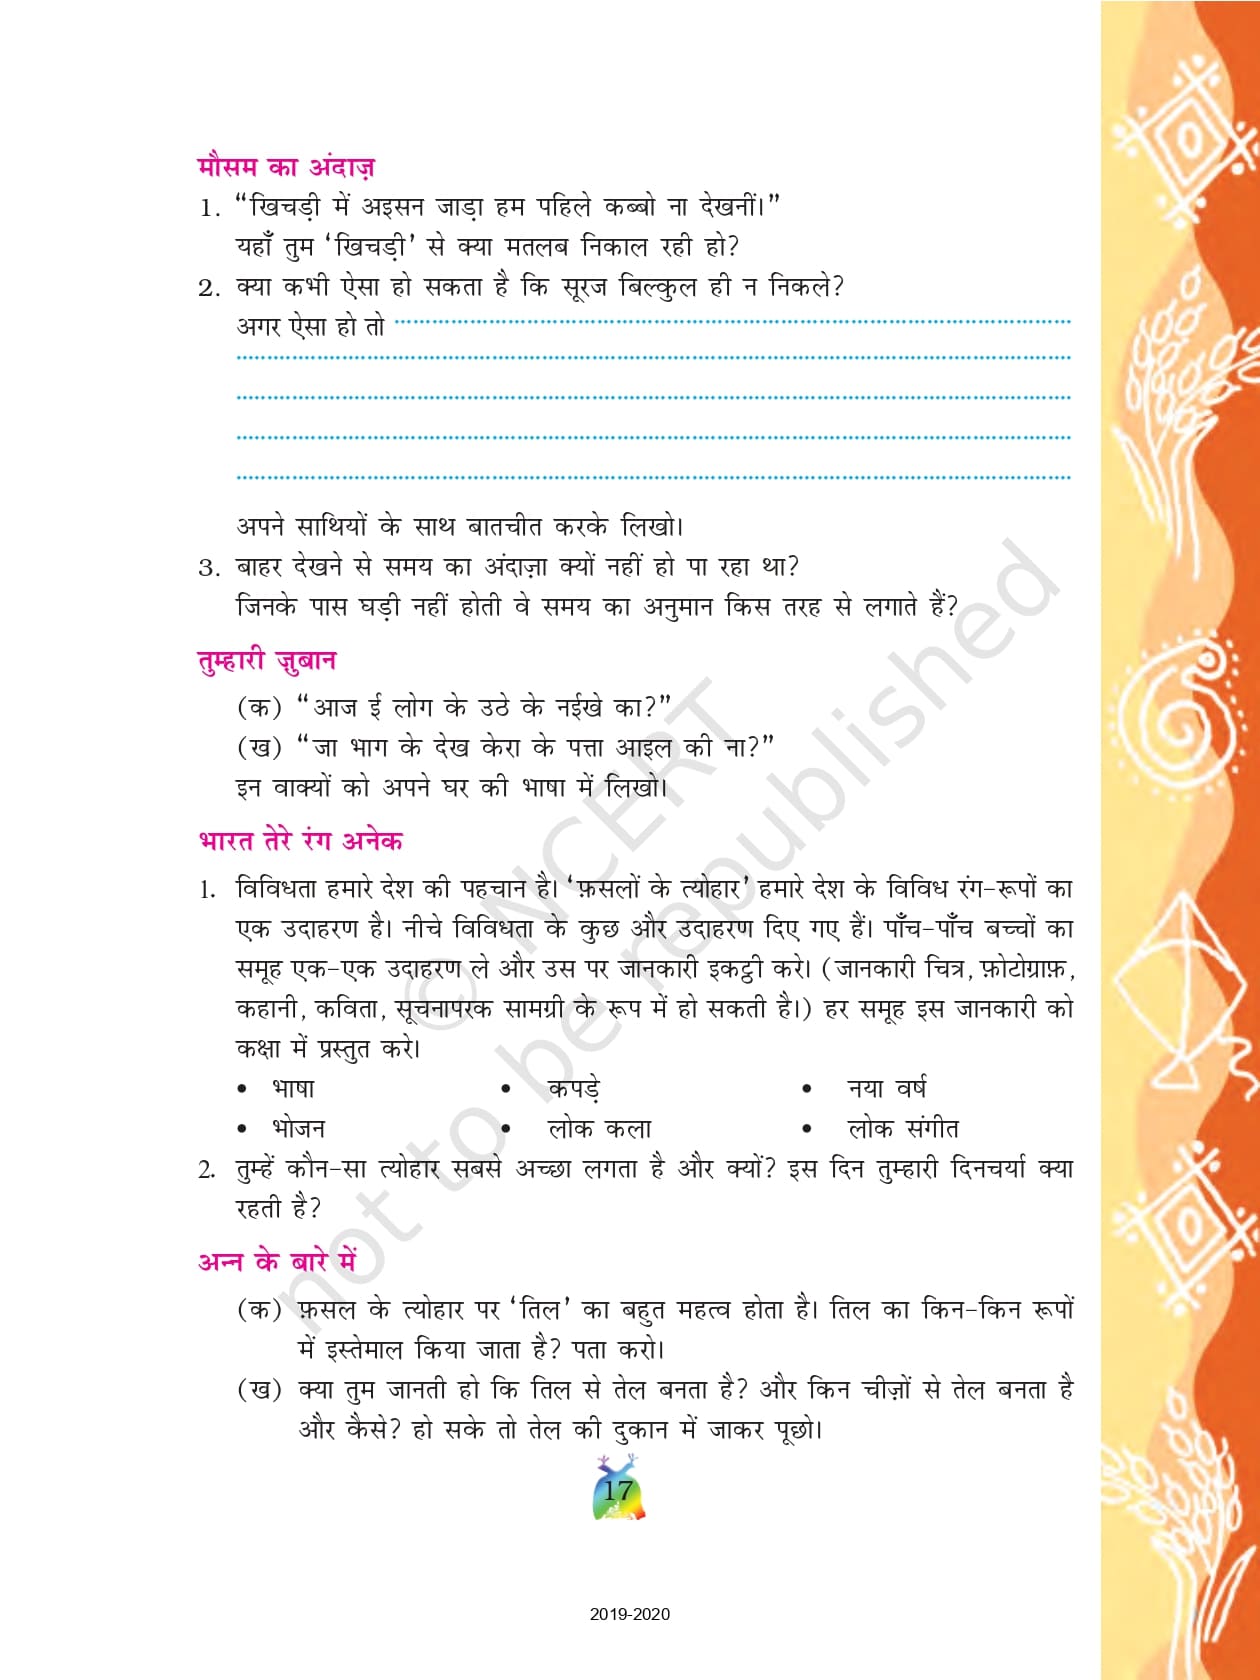 मौसम का अंदाज़
1. “खिचड़ी में अइसन जाड़ा हम पहिले कब्बो ना देखनीं।”
यहाँ तुम ‘खिचड़ी’ से क्या मतलब निकाल रही हो?
2. क्या कभी ऐसा हो सकता है कि सूरज बिल्कुल ही न निकले?
अगर ऐसा हो तो
अपने साथियों के साथ बातचीत करके लिखो।
3. बाहर देखने से समय का अंदाज़ा क्यों नहीं हो पा रहा था?
जिनके पास घड़ी नहीं होती वे समय का अनुमान किस तरह से लगाते हैं?
तुम्हारी ज़ुबान
(क) “आज ई लोग के उठे के नईखे का?”
(ख) “जा भाग के देख केरा के पत्ता आइल की ना?”
इन वाक्यों को अपने घर की भाषा में लिखो।
भारत तेरे रंग अनेक
1. विविधता हमारे देश की पहचान है। ‘फ़सलों के त्योहार’ हमारे देश के विविध रंग-रूपों का
एक उदाहरण है। नीचे विविधता के कुछ और उदाहरण दिए गए हैं। पाँच-पाँच बच्चों का
समूह एक-एक उदाहरण ले और उस पर जानकारी इकट्ठी करे। (जानकारी चित्र, फ़ोटोग्राफ़,
कहानी, कविता, सूचनापरक सामग्री के रूप में हो सकती है।) हर समूह इस जानकारी को
कक्षा में प्रस्तुत करे।
• भाषा • कपड़े • नया वर्ष
• भोजन • लोक कला • लोक संगीत
2. तुम्हें कौन-सा त्योहार सबसे अच्छा लगता है और क्यों? इस दिन तुम्हारी दिनचर्या क्या
रहती है?
अन्न के बारे में
(क) फ़सल के त्योहार पर ‘तिल’ का बहुत महत्व होता है। तिल का किन-किन रूपों
में इस्तेमाल किया जाता है? पता करो।
(ख) क्या तुम जानती हो कि तिल से तेल बनता है? और किन चीज़ों से तेल बनता है
और कैसे? हो सके तो तेल की दुकान में जाकर पूछो।
17
2019-2020
© NCERT
not to be republished